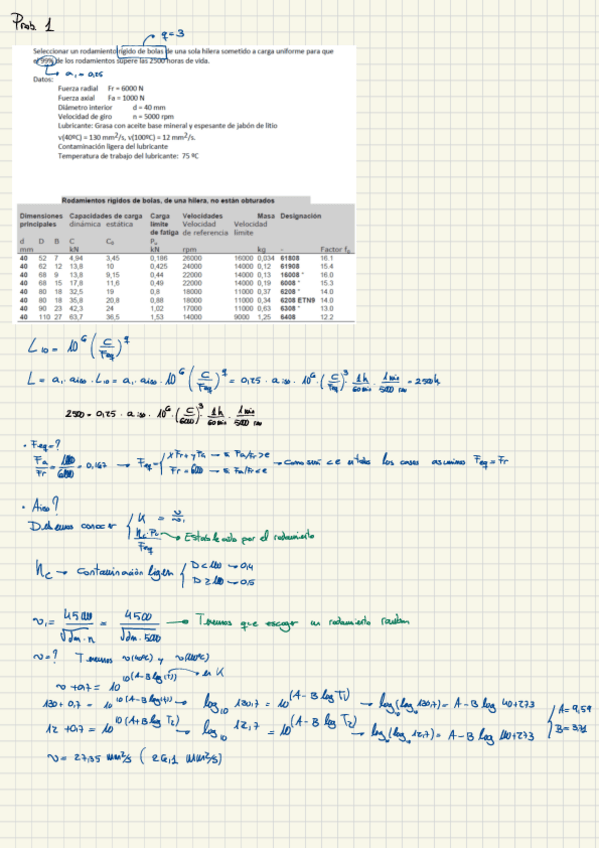 Prob. 1
q=3
Seleccionar un rodamiento rígido de bolas de una sola hilera sometido a carga uniforme para que
el 99% de los rodamientos supere las 2500 horas de vida.
a₁=0,25
Datos:
Fuerza radial Fr = 6000 N
Fuerza axial Fa = 1000 N
Diámetro interior d = 40 mm
Velocidad de giro n = 5000 rpm
Lubricante: Grasa con aceite base mineral y espesante de jabón de litio
v(40ºC) = 130 mm²/s, v(100ºC) = 12 mm²/s.
Contaminación ligera del lubricante
Temperatura de trabajo del lubricante: 75 ºC
Rodamientos rígidos de bolas, de una hilera, no están obturados
Dimensiones Capacidades de carga Carga Velocidades Masa Designación
principales dinámica estática límite Velocidad Velocidad
de fatiga de referencia límite
d D B C C₀ Pᵤ
mm kN kN rpm kg - Factor f₀
40 52 7 4,94 3,45 0,186 26000 16000 0,034 61808 16.1
40 62 12 13,8 10 0,425 24000 14000 0,12 61908 15.4
40 68 9 13,8 9,15 0,44 22000 14000 0,13 16008 * 16.0
40 68 15 17,8 11,6 0,49 22000 14000 0,19 6008 * 15.3
40 80 18 32,5 19 0,8 18000 11000 0,37 6208 * 14.0
40 80 18 35,8 20,8 0,88 18000 11000 0,34 6208 ETN9 14.0
40 90 23 42,3 24 1,02 17000 11000 0,63 6308 * 13.0
40 110 27 63,7 36,5 1,53 14000 9000 1,25 6408 12.2
L₁₀ = 10⁶ (C/Feq)^q
L = a₁ · aiso · L₁₀ = a₁ · aiso · 10⁶ (C/Feq)^q = 0,25 · aiso · 10⁶ · (C/Feq)³ · 1h/60min · 1min/5000 rev = 2500h
2500 = 0,25 · aiso · 10⁶ · (C/6000)³ · 1h/60min · 1min/5000 rev
· Feq=?
Fa/Fr = 1000/6000 = 0,167 → Feq = { XFr+YFa → si Fa/Fr>e
Fr = 6000 → si Fa/Fr<e → como será <e en todos los casos asumimos Feq = Fr
· Aiso?
Debemos conocer { K = v/v₁
ηc·Pu/Feq → Establecido por el rodamiento
ηc → Contaminación ligera { D<100 → 0,4
D≥100 → 0,5
v₁ = 45000/√dm·n = 4500/√dm·5000 → Tenemos que escoger un rodamiento
v=? Tenemos v(40ºC) y v(100ºC)
v+0,7 = 10^10^(A-B log(T)) → en K
130+0,7 = 10^10^(A-B log(T₁)) → log₁₀ 130,7 = 10^(A-B log T₁) → log(log₁₀ 130,7) = A-B log 40+273
12+0,7 = 10^10^(A+B log T₂) → log₁₀ 12,7 = 10^(A-B log T₂) → log(log₁₀ 12,7) = A-B log 100+273
A=9,59
B=3,71
v = 27,35 mm²/s (26,1 mm²/s)